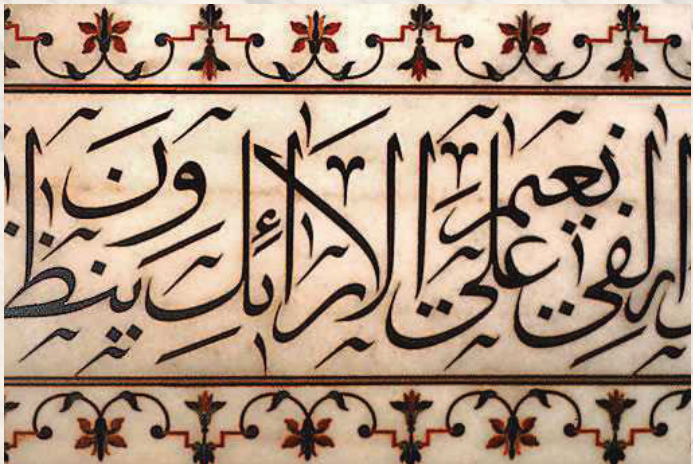 لفي نعيم على الأرائك ينظرون